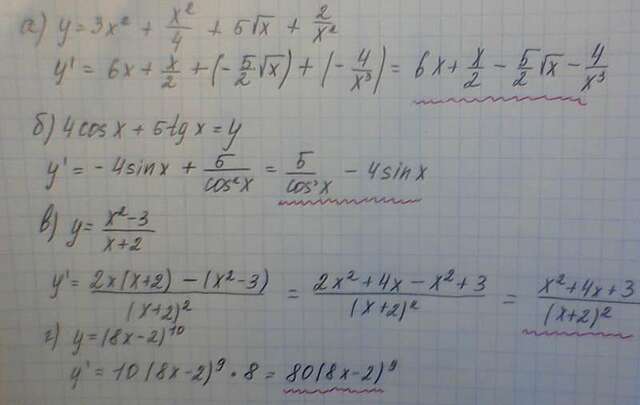 а) y = 3x² + x²/4 + 5√x + 2/x²
y' = 6x + x/2 + (-5/2 √x) + (-4/x³) = 6x + x/2 - 5/2 √x - 4/x³
б) 4cosx + 5tgx = y
y' = -4sinx + 5/cos²x = 5/cos²x - 4sinx
в) y = (x²-3)/(x+2)
y' = (2x(x+2) - (x²-3))/(x+2)² = (2x²+4x-x²+3)/(x+2)² = (x²+4x+3)/(x+2)²
г) y = (8x-2)¹⁰
y' = 10(8x-2)⁹ · 8 = 80(8x-2)⁹